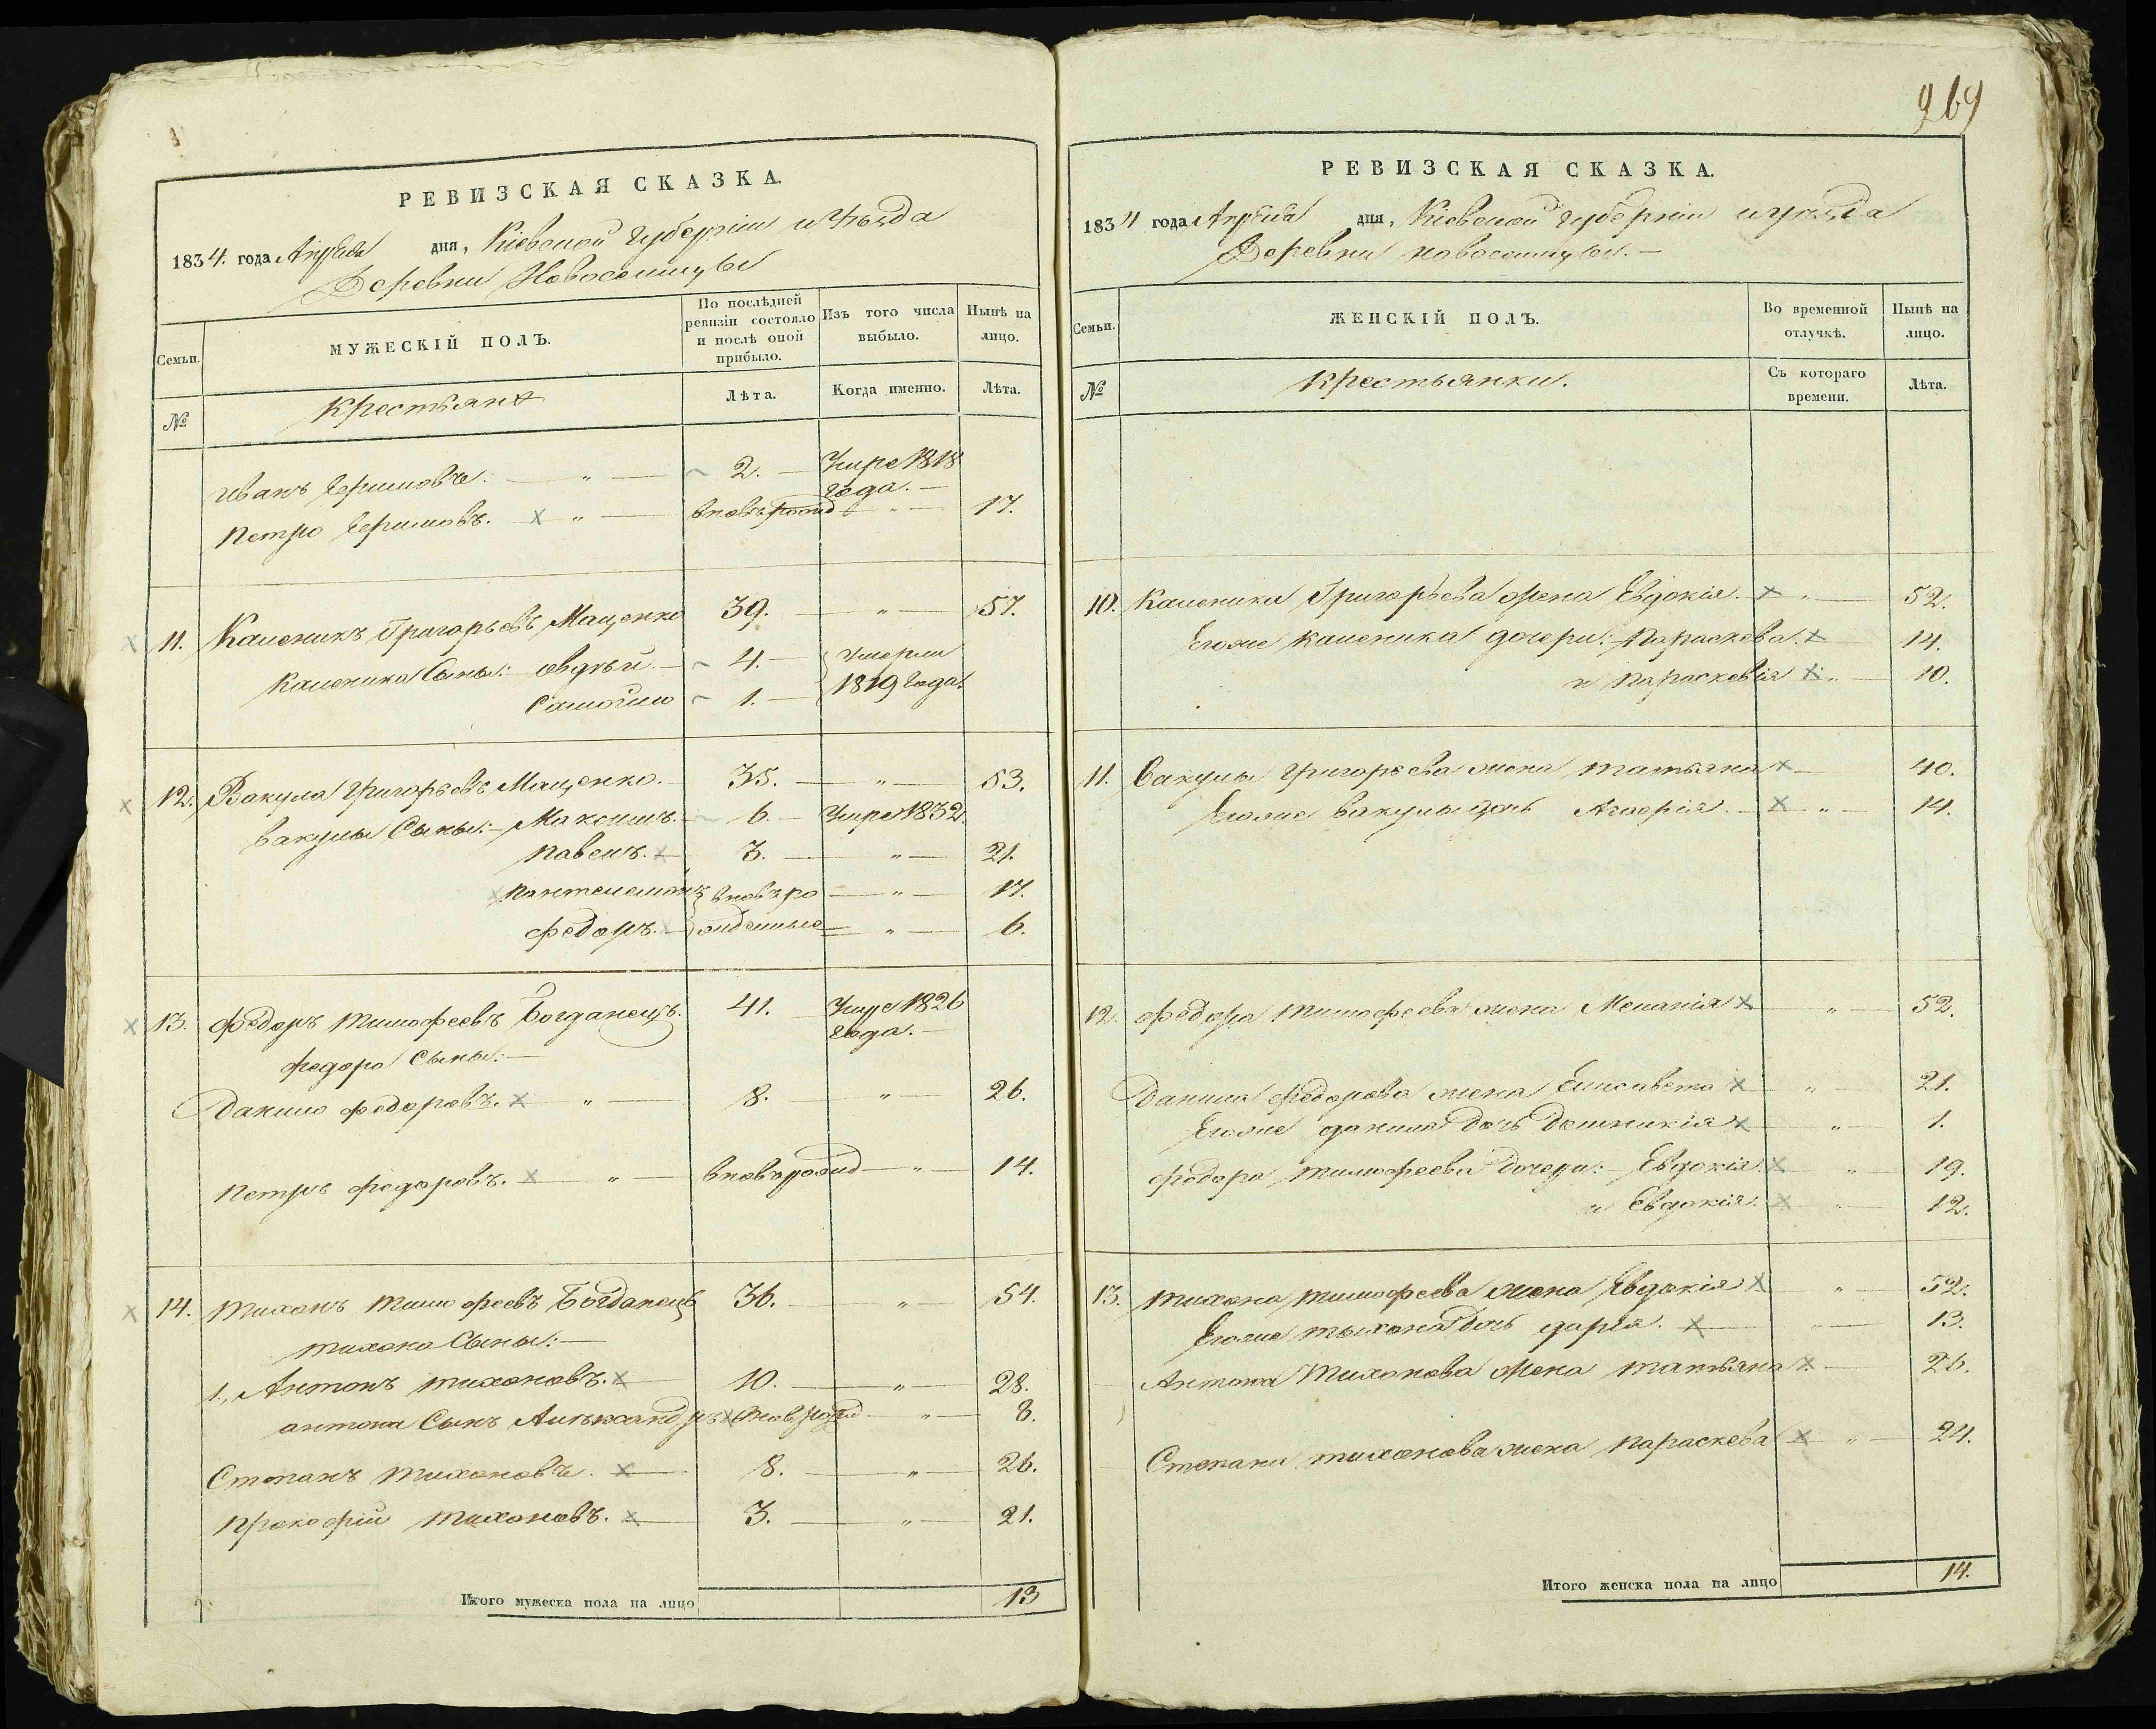 РЕВИЗСКАЯ СКАЗКА.
1834. года Апреля дня, Кіевской Губерніи и Уѣзда
Деревни Новоселицы
Семьи.
МУЖЕСКІЙ ПОЛЪ.
По послѣдней ревизіи состояло и послѣ оной прибыло.
Изъ того числа выбыло.
Нынѣ на лицо.
№
Крестьяне
Лѣта.
Когда именно.
Лѣта.
Иванъ 2. Умре 1818 года.
Петро вновь рожд 17.
11. Каленикъ Григорьевъ Маценко 39. 57.
Каленика Сыны: овдѣй 4. Умерли
Самойло 1. 1819 года.
12. Вакула Григорьевъ Маценко. 35. 53.
Вакулы Сыны: Максимъ. 6. Умре 1832.
Павелъ. 3. 21.
Пантелемонъ вновь ро 17.
Федоръ. жденные 6.
13. Федоръ Тимофеевъ Богданецъ. 41. Умре 1826 года.
Федора Сыны:
Данило Федоровъ. 8. 26.
Петръ Федоровъ. вновь рожд 14.
14. Тихонъ Тимофеевъ Богданецъ 36. 54.
Тихона Сыны:
1., Антонъ Тихоновъ. 10. 28.
Антона Сынъ Алѣксандръ внов рожд 8.
Степанъ Тихоновъ. 8. 26.
Прокофій Тихоновъ. 3. 21.
Итого мужеска пола на лицо 13
269
РЕВИЗСКАЯ СКАЗКА.
1834 года Апреля дня, Кіевской Губерніи и уѣзда
Деревни Новоселицы.
Семьи.
ЖЕНСКІЙ ПОЛЪ.
Во временной отлучкѣ.
Нынѣ на лицо.
№
Крестьянки.
Съ котораго времени.
Лѣта.
10. Каленика Григорьева жена Евдокія. 52.
Егоже Каленика дочери: Параскева. 14.
и Параскевія 10.
11. Вакулы Григорьева жена Татьяна 40.
Егоже Вакулы дочь 14.
12. Федора Тимофеева жена Меланія 52.
Данила Федорова жена Елисавета 21.
Егоже Данила Дочь Домникія 1.
Федора Тимофеева Дочери: Евдокія. 19.
и Евдокія. 12.
13. Тихона Тимофеева жена Евдокія 52.
Егоже Тыхона Дочь Дарія. 13.
Антона Тихонова жена Татьяна 26.
Степана Тихонова жена Параскева 24.
Итого женска пола на лицо 14.